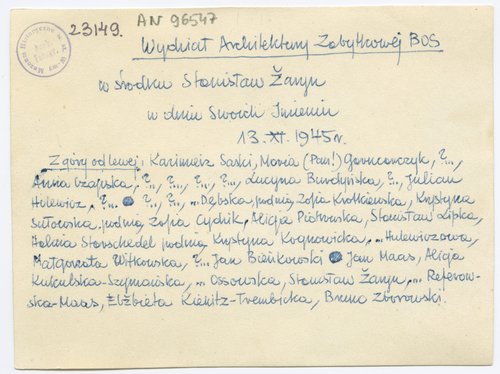 23149.
AN 96547
Wydział Architektury Zabytkowej BOS
w środku Stanisław Żaryn
w dniu Swoich Imienin
13.XI.1945r.
Z góry od lewej: Kazimierz Saski, Maria (Pan!) ?...,
Anna Czapska, ?..., ?..., ?..., ?..., Lucyna Burdyńska, ?..., Julian
Hulewicz, ?... ?..., ?..., ... Dębska, judnią Zofia Krotkiewska, Krystyna
Sułowska, judnią Zofia Cydzik, Alicja Piotrowska, Stanisław Lipka,
Halina Starschedel judnią Krystyna Kognowicka, ... Hulewiczowa,
Małgorzata Witkowska, ?... Jan Bieńkowski Jan Maas, Alicja
Kukulska-Szymańska, ... Ossowska, Stanisław Żaryn, ... Referow-
ska-Maas, Elżbieta Kiekitz-Trembicka, Bruno Zborowski.